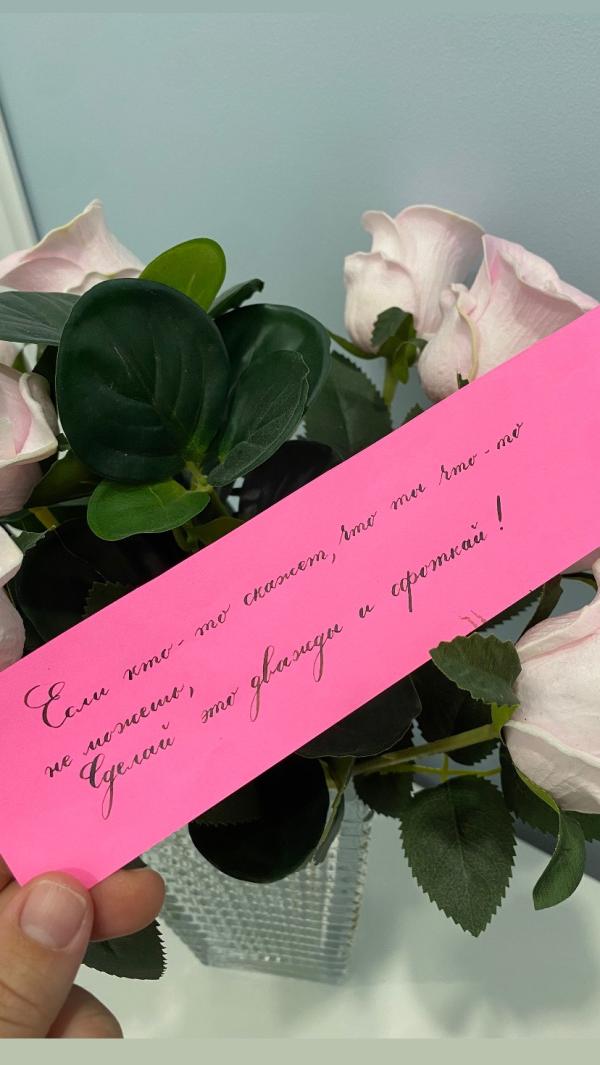 Если кто-то скажет, что ты что-то
не можешь,
Сделай это дважды и сфоткай!